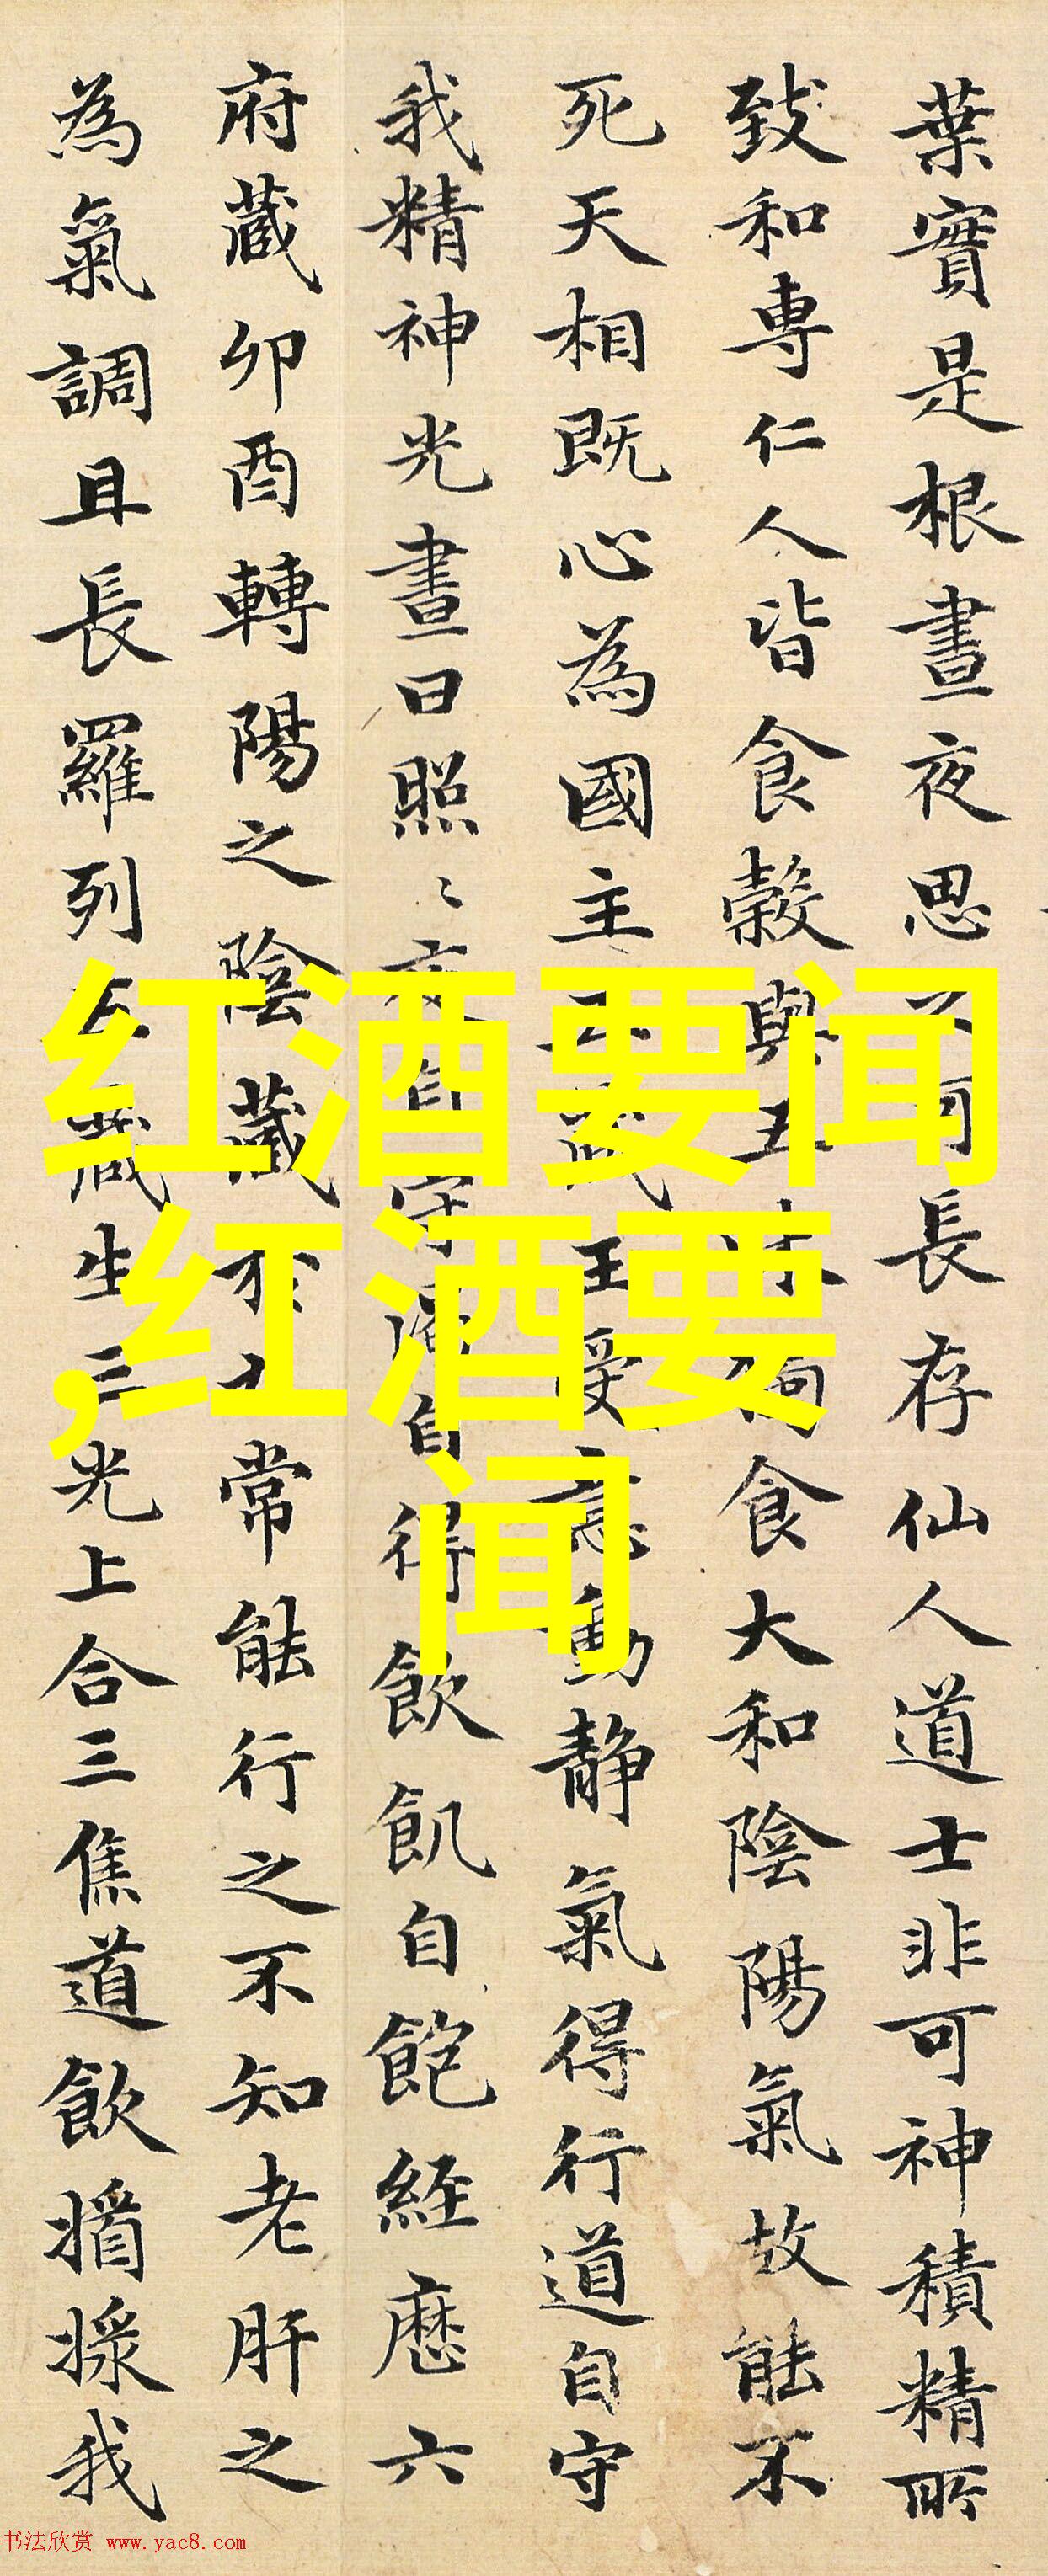 葉實是根晝夜思長存仙人道士非可神積精所
致和專仁人皆食穀與五味食大和陰陽氣故能不
死天相既心為國主五藏王受意動靜氣得行道自守
我精神光晝日照〻夜自守渴自得飲飢自飽經歷六
府藏卯酉轉陽之陰藏於九常能行之不知老肝之
為氣調且長羅列五藏生三光上合三焦道飲漿我
红酒要闻
,红酒要
闻
书法欣赏 www.yac8.com